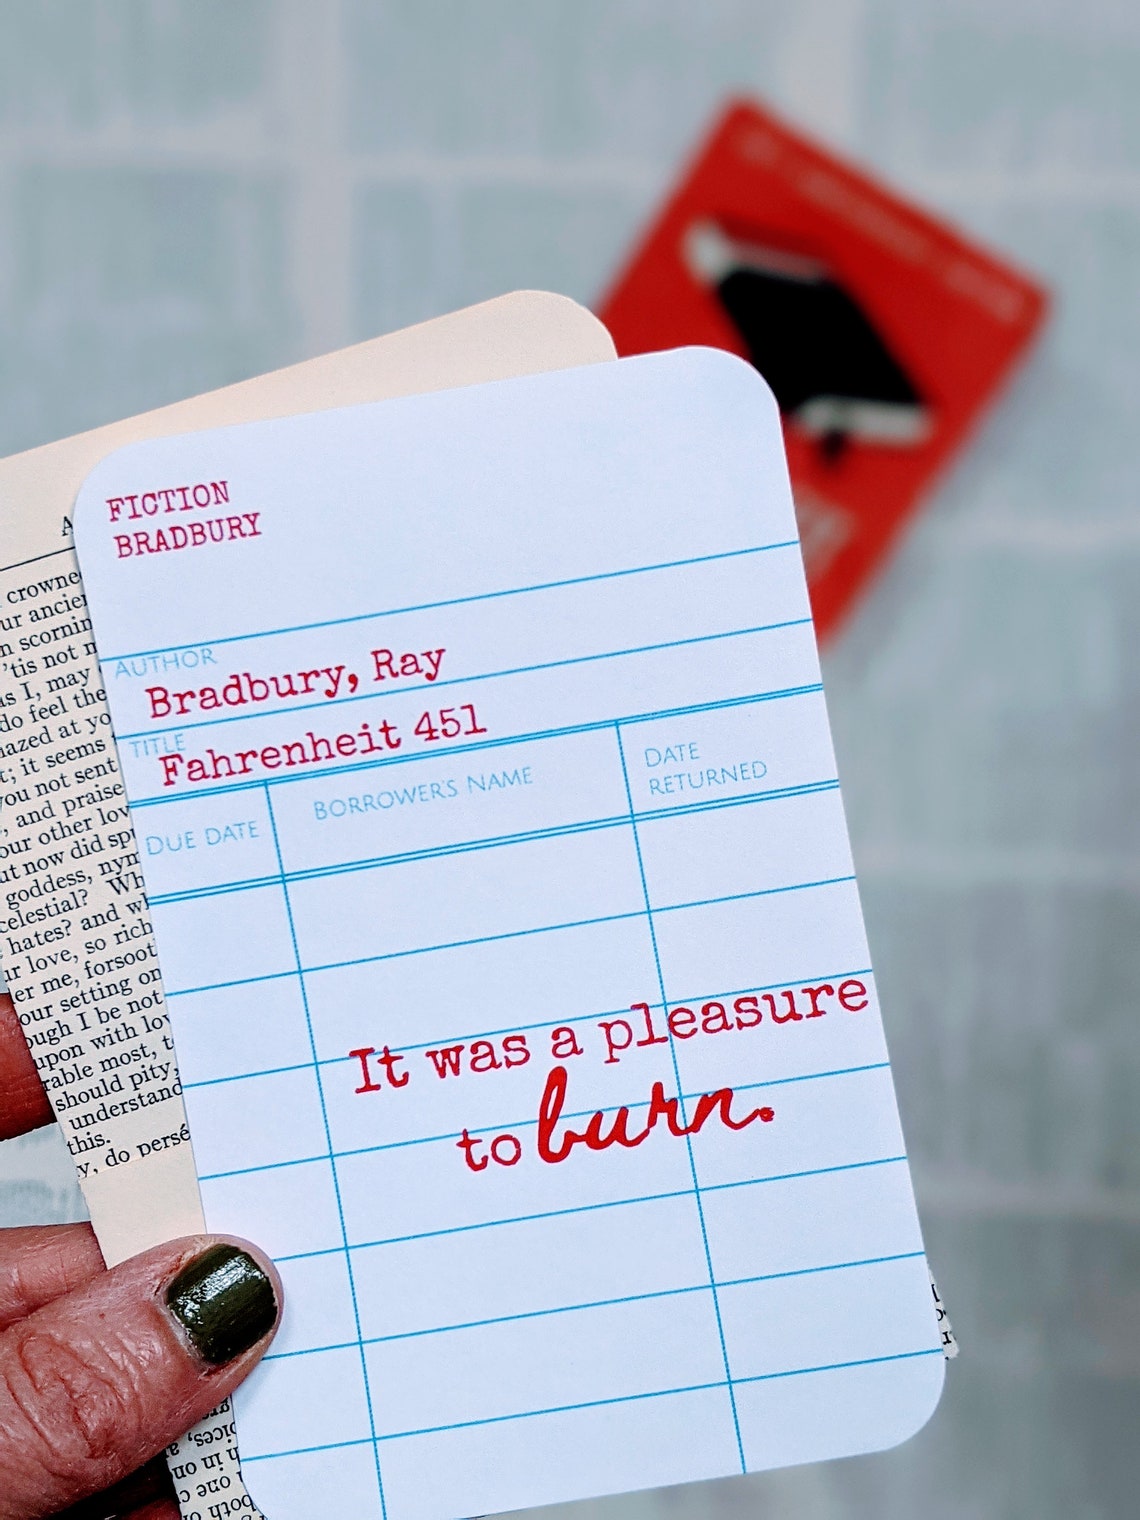 FICTION
BRADBURY
AUTHOR
Bradbury, Ray
TITLE
Fahrenheit 451
DUE DATE
BORROWER'S NAME
DATE
RETURNED
It was a pleasure
to burn.
A
crowne
ur ancien
n scornin
'tis not n
as I, may
do feel the
nazed at yo
t; it seems
you not sent
, and praise
our other lov
ut now did spu
goddess, nym
celestial? Wh
hates? and wh
ur love, so rich
er me, forsoot
our setting on
ough I be not
upon with lov
rable most, t
should pity,
understand
this.
y, do persé